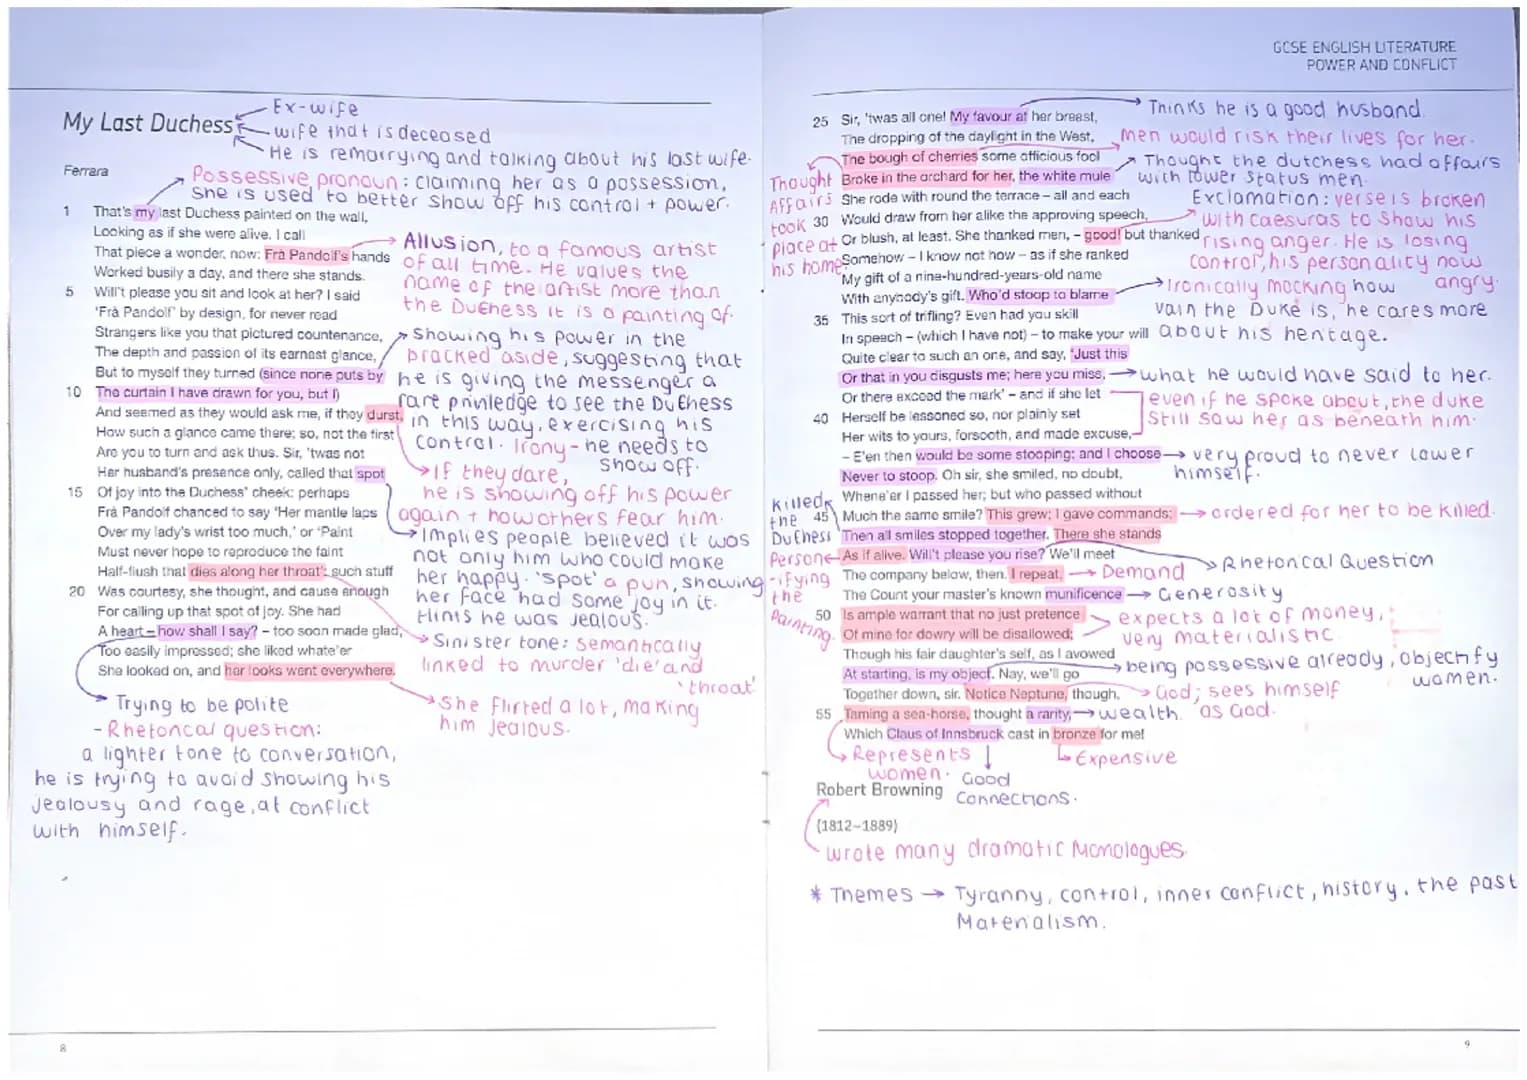 My Last Duchess
Ex-wife
wife that is deceased
He is remarrying and talking about his last wife.
Ferrara
Possessive pronoun: claiming her as a possession,
she is used to better show off his control + power.
1 That's my last Duchess painted on the wall,
Looking as if she were alive. I call
That piece a wonder, now: Frà Pandolf's hands
Worked busily a day, and there she stands.
5 Will't please you sit and look at her? I said
'Frà Pandolf' by design, for never read
Strangers like you that pictured countenance,
The depth and passion of its earnest glance,
But to myself they turned (since none puts by
10 The curtain I have drawn for you, but I)
And seemed as they would ask me, if they durst,
How such a glance came there; so, not the first
Are you to turn and ask thus. Sir, 'twas not
Her husband's presence only, called that spot
15 Of joy into the Duchess' cheek: perhaps
Frà Pandolf chanced to say 'Her mantle laps
Over my lady's wrist too much,' or 'Paint
Must never hope to reproduce the faint
Half-flush that dies along her throat': such stuff
20 Was courtesy, she thought, and cause enough
For calling up that spot of joy. She had
A heart – how shall I say? – too soon made glad,
Too easily impressed; she liked whate'er
She looked on, and her looks went everywhere.
Allusion, to a famous artist
of all time. He values the
name of the artist more than
the Duchess it is a painting of.
Showing his power in the
bracked aside, suggesting that
he is giving the messenger a
rare privledge to see the Duchess
in this way, exercising his
control. Irony - he needs to
show off.
If they dare,
he is showing off his power
again + how others fear him.
Implies people believed it was
not only him who could make
her happy. 'spot' a pun, showing
her face had some joy in it.
Hints he was jealous.
Sinister tone: semantically
linked to murder 'die' and
'throat'
She flirted a lot, making
him jealous.
Trying to be polite
- Rhetorical question:
a lighter tone to conversation,
he is trying to avoid showing his
jealousy and rage, at conflict
with himself.
8
GCSE ENGLISH LITERATURE
POWER AND CONFLICT
25 Sir, 'twas all one! My favour at her breast,
The dropping of the daylight in the West,
The bough of cherries some officious fool
Broke in the orchard for her, the white mule
She rode with round the terrace – all and each
30 Would draw from her alike the approving speech,
Or blush, at least. She thanked men, – good! but thanked
Somehow – I know not how – as if she ranked
My gift of a nine-hundred-years-old name
With anybody's gift. Who'd stoop to blame
35 This sort of trifling? Even had you skill
In speech – (which I have not) – to make your will
Quite clear to such an one, and say, 'Just this
Or that in you disgusts me; here you miss,
Or there exceed the mark' – and if she let
40 Herself be lessoned so, nor plainly set
Her wits to yours, forsooth, and made excuse,
– E'en then would be some stooping; and I choose
Never to stoop. Oh sir, she smiled, no doubt,
Whene'er I passed her; but who passed without
45 Much the same smile? This grew; I gave commands;
Then all smiles stopped together. There she stands
As if alive. Will't please you rise? We'll meet
The company below, then. I repeat,
The Count your master's known munificence
50 Is ample warrant that no just pretence
Of mine for dowry will be disallowed;
Though his fair daughter's self, as I avowed
At starting, is my object. Nay, we'll go
Together down, sir. Notice Neptune, though,
55 Taming a sea-horse, thought a rarity,
Which Claus of Innsbruck cast in bronze for me!
Thinks he is a good husband.
men would risk their lives for her.
Thought the dutchess had affairs
with lower status men.
Thought
Affairs
took
place at
his home
Exclamation: verse is broken
with caesuras to show his
rising anger. He is losing
control, his personality now
angry.
Ironically mocking how
vain the Duke is, he cares more
about his heritage.
what he would have said to her.
even if he spoke about, the duke
still saw her as beneath him.
very proud to never lower
himself.
Killed
the
Duchess
ordered for her to be killed.
Person
-ifying
the
Painting.
Rhetorical Question
Demand
Generosity
expects a lot of money,
very materialistic.
being possessive already, objectify
women.
God; sees himself
as God.
wealth.
Represents
women.
Good
Connections.
Expensive
Robert Browning
(1812–1889)
wrote many dramatic Monologues.
* Themes → Tyranny, control, inner conflict, history, the past
Materialism.
9